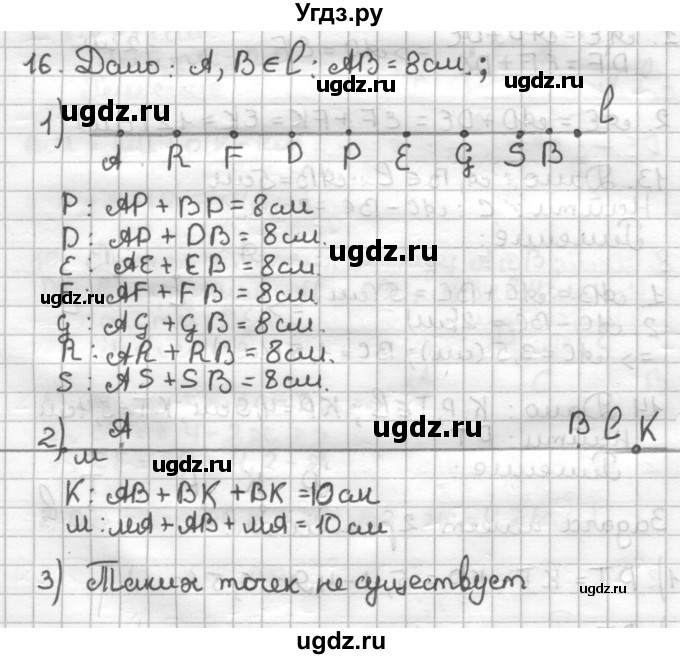 Угдз.ру
16. Дано: A, B ∈ l : AB = 8 см.;
ugdz.ru
ugdz.ru
ugdz.ru
1) l
A R F D P E G S B
P : AP + BP = 8 см
D : AD + DB = 8 см.
ugdz.ru
E : AE + EB = 8 см.
ugdz.ru
F : AF + FB = 8 см.
G : AG + GB = 8 см.
R : AR + RB = 8 см.
S : AS + SB = 8 см.
2) м A B l K
ugdz.ru
ugdz.ru
K : AB + BK + BK = 10 см
м : мA + AB + мA = 10 см
3) Таких точек не существует
ugdz.ru
ugdz.ru